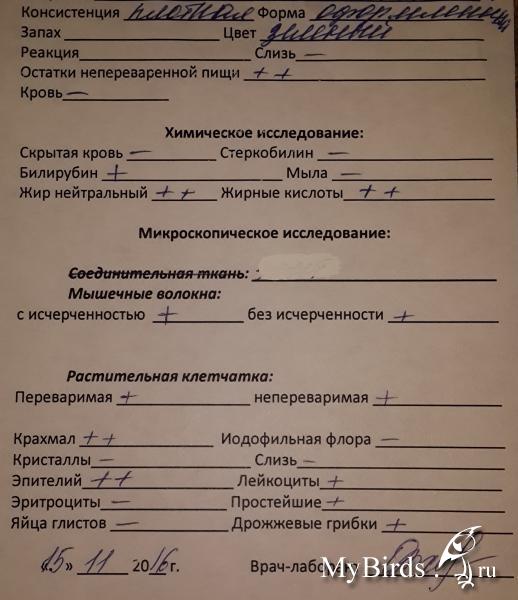 Консистенция плотная Форма оформленный
Запах Цвет зеленый
Реакция Слизь –
Остатки непереваренной пищи ++
Кровь –
Химическое исследование:
Скрытая кровь – Стеркобилин –
Билирубин + Мыла –
Жир нейтральный ++ Жирные кислоты ++
Микроскопическое исследование:
Соединительная ткань:
Мышечные волокна:
с исчерченностью + без исчерченности +
Растительная клетчатка:
Переваримая + непереваримая +
Крахмал ++ Иодофильная флора –
Кристаллы – Слизь –
Эпителий ++ Лейкоциты +
Эритроциты – Простейшие +
Яйца глистов – Дрожжевые грибки +
«15» 11 2016г. Врач-лаборант
MyBirds.ru